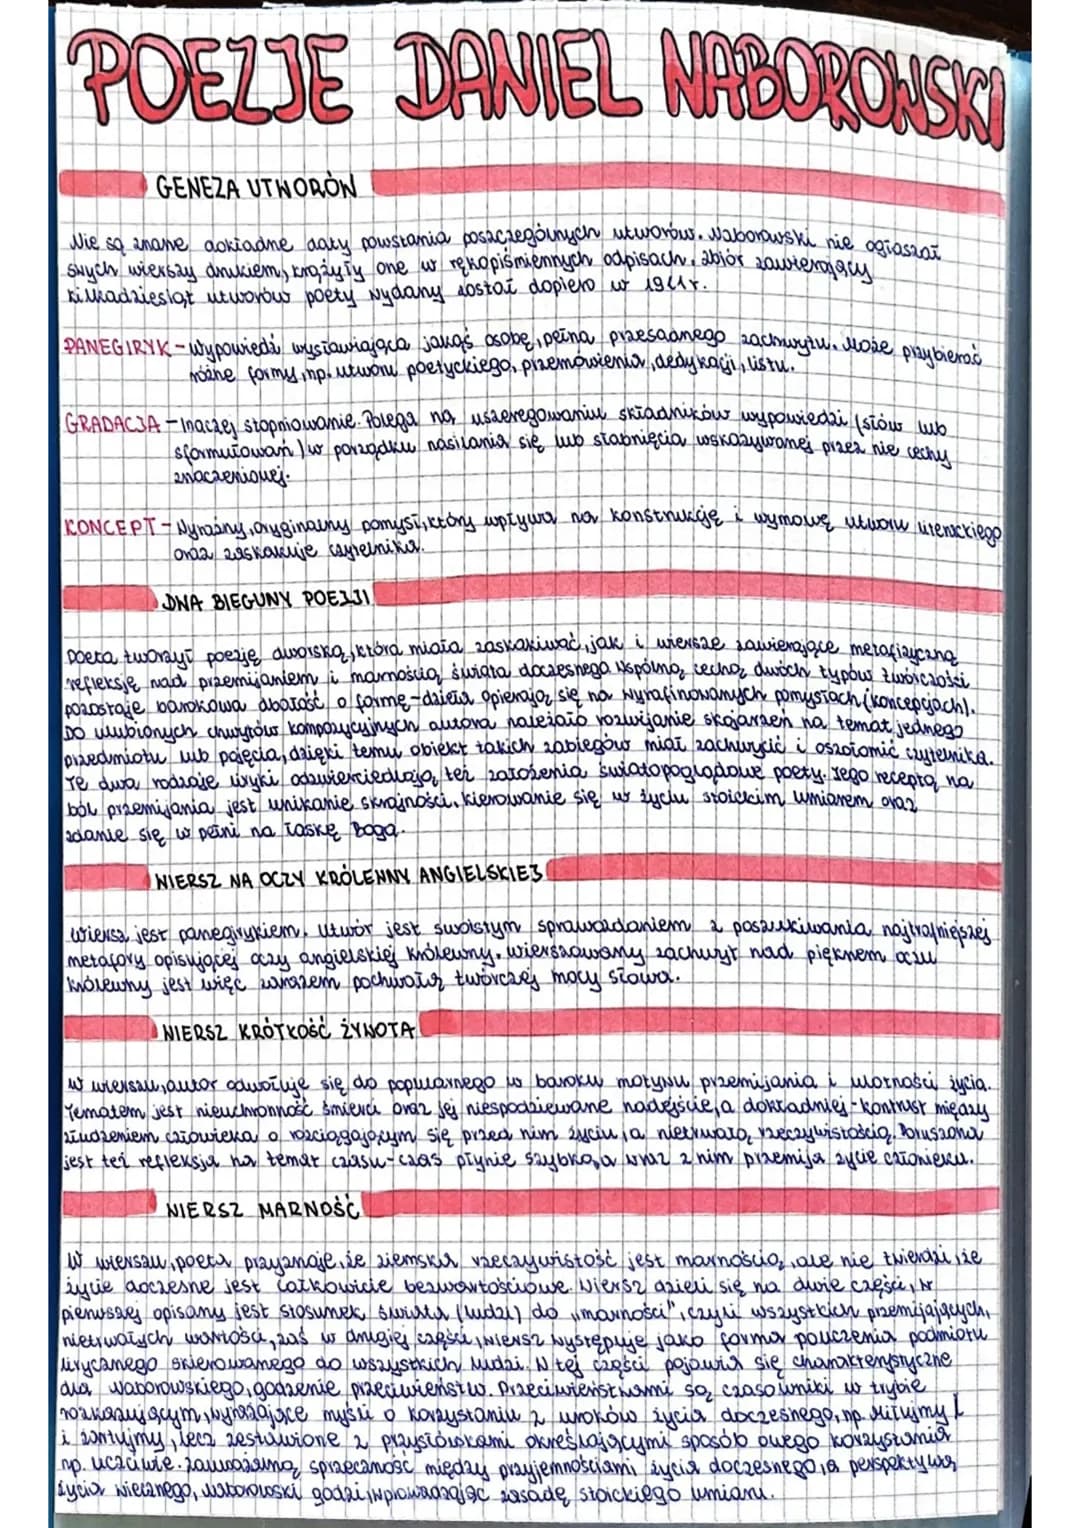 POEZJE DANIEL NABOROWSKI
GENEZA UTWORÓW
Nie są znane dokładne daty powstania poszczególnych utworów. Naborowski nie ogłaszał
swych wierszy drukiem, krążyły one w rękopiśmiennych odpisach. zbiór zawierający
kilkadziesiąt utworów poety wydany został dopiero w 1961r.
PANEGIRYK - Wypowiedź wysławiająca jakąś osobę, pełna przesadnego zachwytu. Może przybierać
różne formy, np. utworu poetyckiego, przemówienia, dedykacji, listu.
GRADACJA - Inaczej stopniowanie. Polega na uszeregowaniu składników wypowiedzi (słów lub
sformułowań) w porządku nasilania się lub słabnięcia wskazywanej przez nie cechy
znaczeniowej.
KONCEPT - Wyraźny, oryginalny pomysł, który wpływa na konstrukcję i wymowę utworu literackiego
oraz zaskakuje czytelnika.
DWA BIEGUNY POEZJI
Poeta tworzył poezję dworską, która miała zaskakiwać, jak i wiersze zawierające metafizyczną
refleksję nad przemijaniem i marnością świata doczesnego. Wspólną cechą dwóch typów twórczości
pozostaje barokowa dbałość o formę - dzieła opierają się na wyrafinowanych pomysłach (koncepcjach).
Do ulubionych chwytów kompozycyjnych autora należało rozwijanie skojarzeń na temat jednego
przedmiotu lub pojęcia, dzięki temu obiekt takich zabiegów miał zachwycić i oszołomić czytelnika.
Te dwa rodzaje liryki odzwierciedlają też założenia światopoglądowe poety. Jego receptą na
ból przemijania jest unikanie skrajności, kierowanie się w życiu stoickim umiarem oraz
zdanie się w pełni na łaskę Boga.
WIERSZ NA OCZY KRÓLEWNY ANGIELSKIEJ
Wiersz jest panegirykiem. Utwór jest swoistym sprawozdaniem z poszukiwania najtrafniejszej
metafory opisującej oczy angielskiej królewny. Wierszowany zachwyt nad pięknem oczu
królewny jest więc zarazem pochwałą twórczej mocy słowa.
WIERSZ KRÓTKOŚĆ ŻYWOTA
W wierszu, autor odwołuje się do popularnego w baroku motywu przemijania i ulotności życia.
Tematem jest nieuchronność śmierci oraz jej niespodziewane nadejście, a dokładniej - kontrast między
złudzeniem człowieka o rozciągającym się przed nim życiu, a nietrwałą rzeczywistością. Poruszona
jest też refleksja na temat czasu - czas płynie szybko, a wraz z nim przemija życie człowieka.
WIERSZ MARNOŚĆ
W wierszu, poeta przyznaje, że ziemska rzeczywistość jest marnością, ale nie twierdzi, że
życie doczesne jest całkowicie bezwartościowe. Wiersz dzieli się na dwie części, w
pierwszej opisany jest stosunek świata (ludzi) do "marności", czyli wszystkich przemijających,
nietrwałych wartości, zaś w drugiej części, wiersz występuje jako forma pouczenia podmiotu
lirycznego skierowanego do wszystkich ludzi. W tej części pojawia się charakterystyczne
dla Naborowskiego, godzenie przeciwieństw. Przeciwieństwami są czasowniki w trybie
rozkazującym, wyrażające myśli o korzystaniu z uroków życia doczesnego, np. miłujmy
i żartujmy, lecz zestawione z przysłówkami określającymi sposób owego korzystania
np. uczciwie. Zauważalną sprzeczność między przyjemnościami życia doczesnego, a perspektywą
życia wiecznego, Naborowski godzi, wprowadzając zasadę stoickiego umiaru.